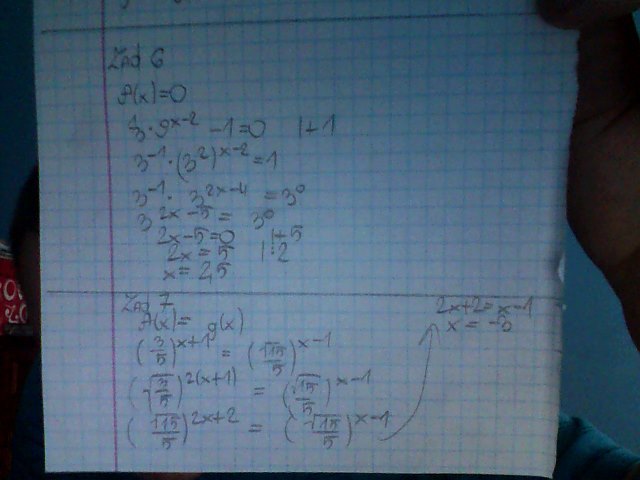 Zad 6
f(x)=0
3·9^(x-2) -1=0 |+1
3^(-1)·(3²)^(x-2)=1
3^(-1)·3^(2x-4)=3⁰
3^(2x-5)=3⁰
2x-5=0 |+5
2x=5 |:2
x=2,5
Zad 7
f(x)=g(x)
(3/5)^(x+1)=(√15/5)^(x-1)
(√(3/5))^(2(x+1))=(√15/5)^(x-1)
(√15/5)^(2x+2)=(√15/5)^(x-1)
2x+2=x-1
x=-3